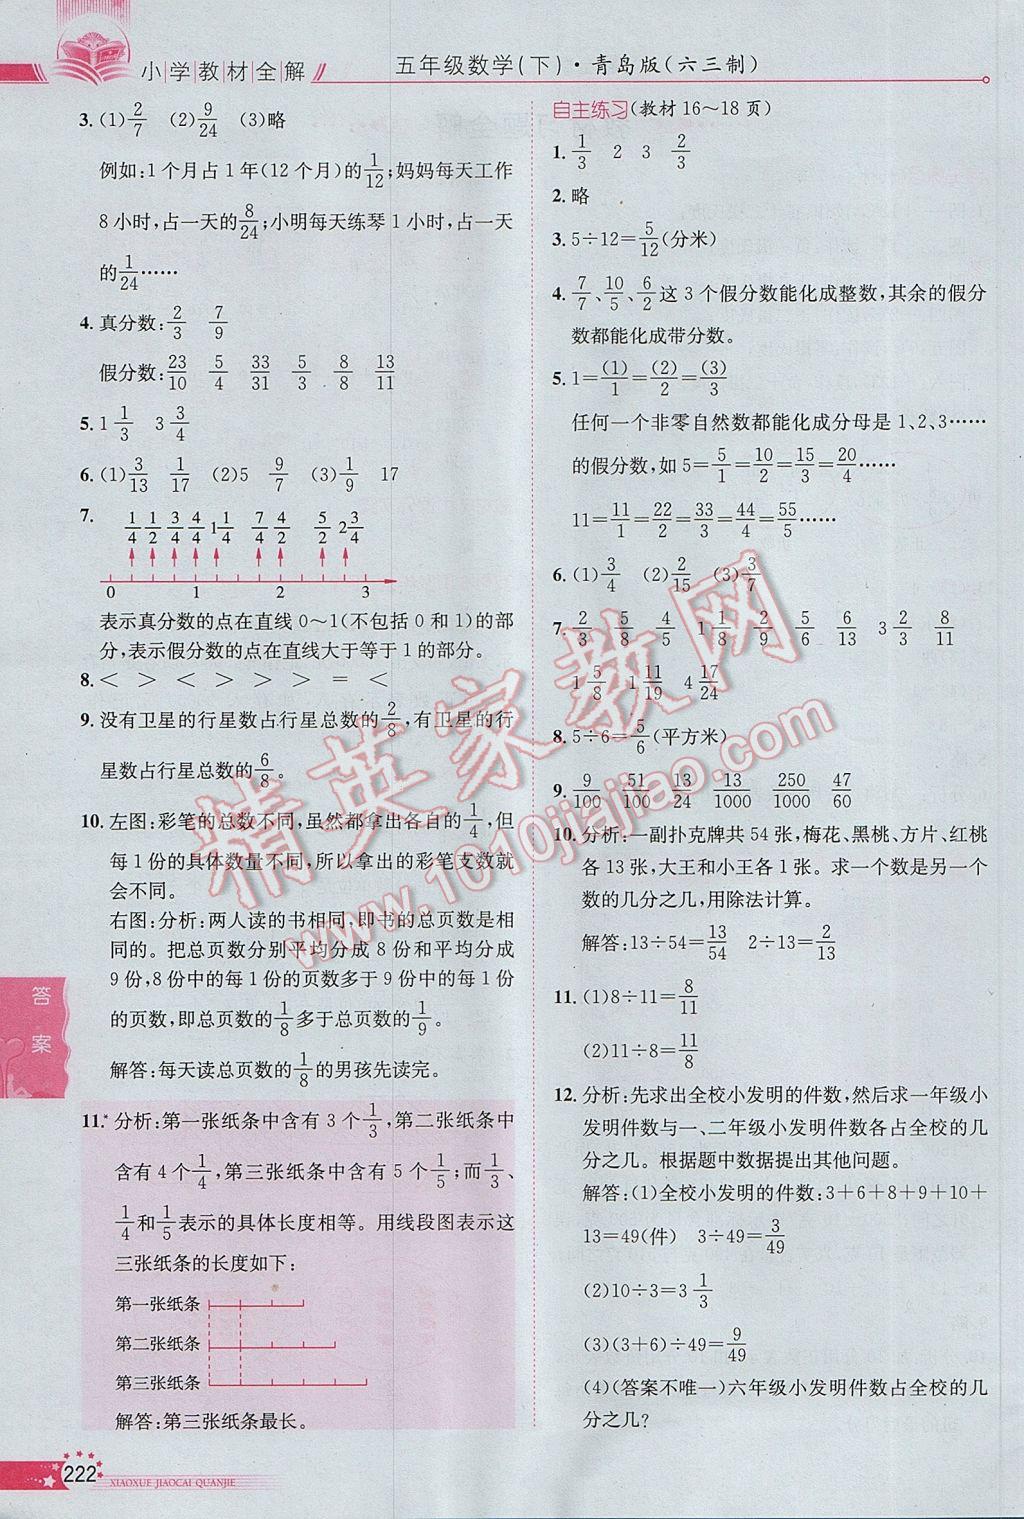 小学教材全解
五年级数学(下)·青岛版(六三制)
3. (1)2/7 (2)9/24 (3)略
例如:1个月占1年(12个月)的1/12;妈妈每天工作
8小时,占一天的8/24;小明每天练琴1小时,占一天
的1/24……
4. 真分数:2/3 7/9
假分数:23/10 5/4 33/31 5/3 8/8 13/11
5. 1 1/3 3 3/4
6. (1)3/13 1/17 (2)5 9/7 (3)1/9 17
7. 1/4 1/2 3/4 4/4 1 1/4 7/4 4/2 5/2 2 3/4
0 1 2 3
表示真分数的点在直线0~1(不包括0和1)的部
分,表示假分数的点在直线大于等于1的部分。
8. < > < > > > = <
9. 没有卫星的行星数占行星总数的2/8,有卫星的行
星数占行星总数的6/8。
10. 左图:彩笔的总数不同,虽然都拿出各自的1/4,但
每1份的具体数量不同,所以拿出的彩笔支数就
会不同。
右图:分析:两人读的书相同,即书的总页数是相
同的。把总页数分别平均分成8份和平均分成
9份,8份中的每1份的页数多于9份中的每1份
的页数,即总页数的1/8多于总页数的1/9。
解答:每天读总页数的1/8的男孩先读完。
11.* 分析:第一张纸条中含有3个1/3,第二张纸条中
含有4个1/4,第三张纸条中含有5个1/5;而1/3、
1/4和1/5表示的具体长度相等。用线段图表示这
三张纸条的长度如下:
第一张纸条
第二张纸条
第三张纸条
解答:第三张纸条最长。
自主练习(教材16~18页)
1. 1/3 2 3 2/3
2. 略
3. 5÷12=5/12(分米)
4. 7/7、10/5、6/2这3个假分数能化成整数,其余的假分
数都能化成带分数。
5. 1=(1)/1=(2)/2=(3)/3
任何一个非零自然数都能化成分母是1、2、3……
的假分数,如5=5/1=10/2=15/3=20/4……
11=11/1=22/2=33/3=44/4=55/5……
6. (1)3/4 (2)2/15 (3)3/7
7. 2/5 5/8 4/5 1 1/8 2/9 5/6 6/13 3 2/3 8/11
1 5/8 1 11/19 4 17/24
8. 5÷6=5/6(平方米)
9. 9/100 51/100 13/24 13/1000 250/1000 47/60
10. 分析:一副扑克牌共54张,梅花、黑桃、方片、红桃
各13张,大王和小王各1张。求一个数是另一个
数的几分之几,用除法计算。
解答:13÷54=13/54 2÷13=2/13
11. (1)8÷11=8/11
(2)11÷8=11/8
12. 分析:先求出全校小发明的件数,然后求一年级小
发明件数与一、二年级小发明件数各占全校的几
分之几。根据题中数据提出其他问题。
解答:(1)全校小发明的件数:3+6+8+9+10+
13=49(件) 3÷49=3/49
(2)10÷3=3 1/3
(3)(3+6)÷49=9/49
(4)(答案不唯一)六年级小发明件数占全校的几
分之几?
答案
222
XIAOXUE JIAOCAI QUANJIE
精英家教网
www.1010jiajiao.com